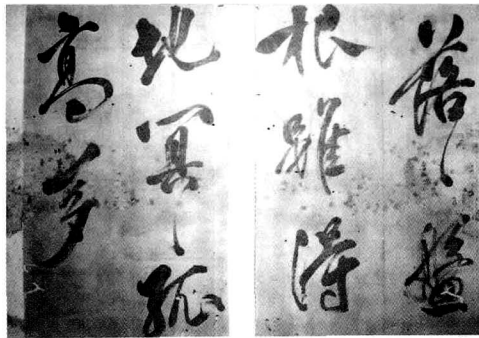 落〻盤
根雖得
地冥〻孤
高多